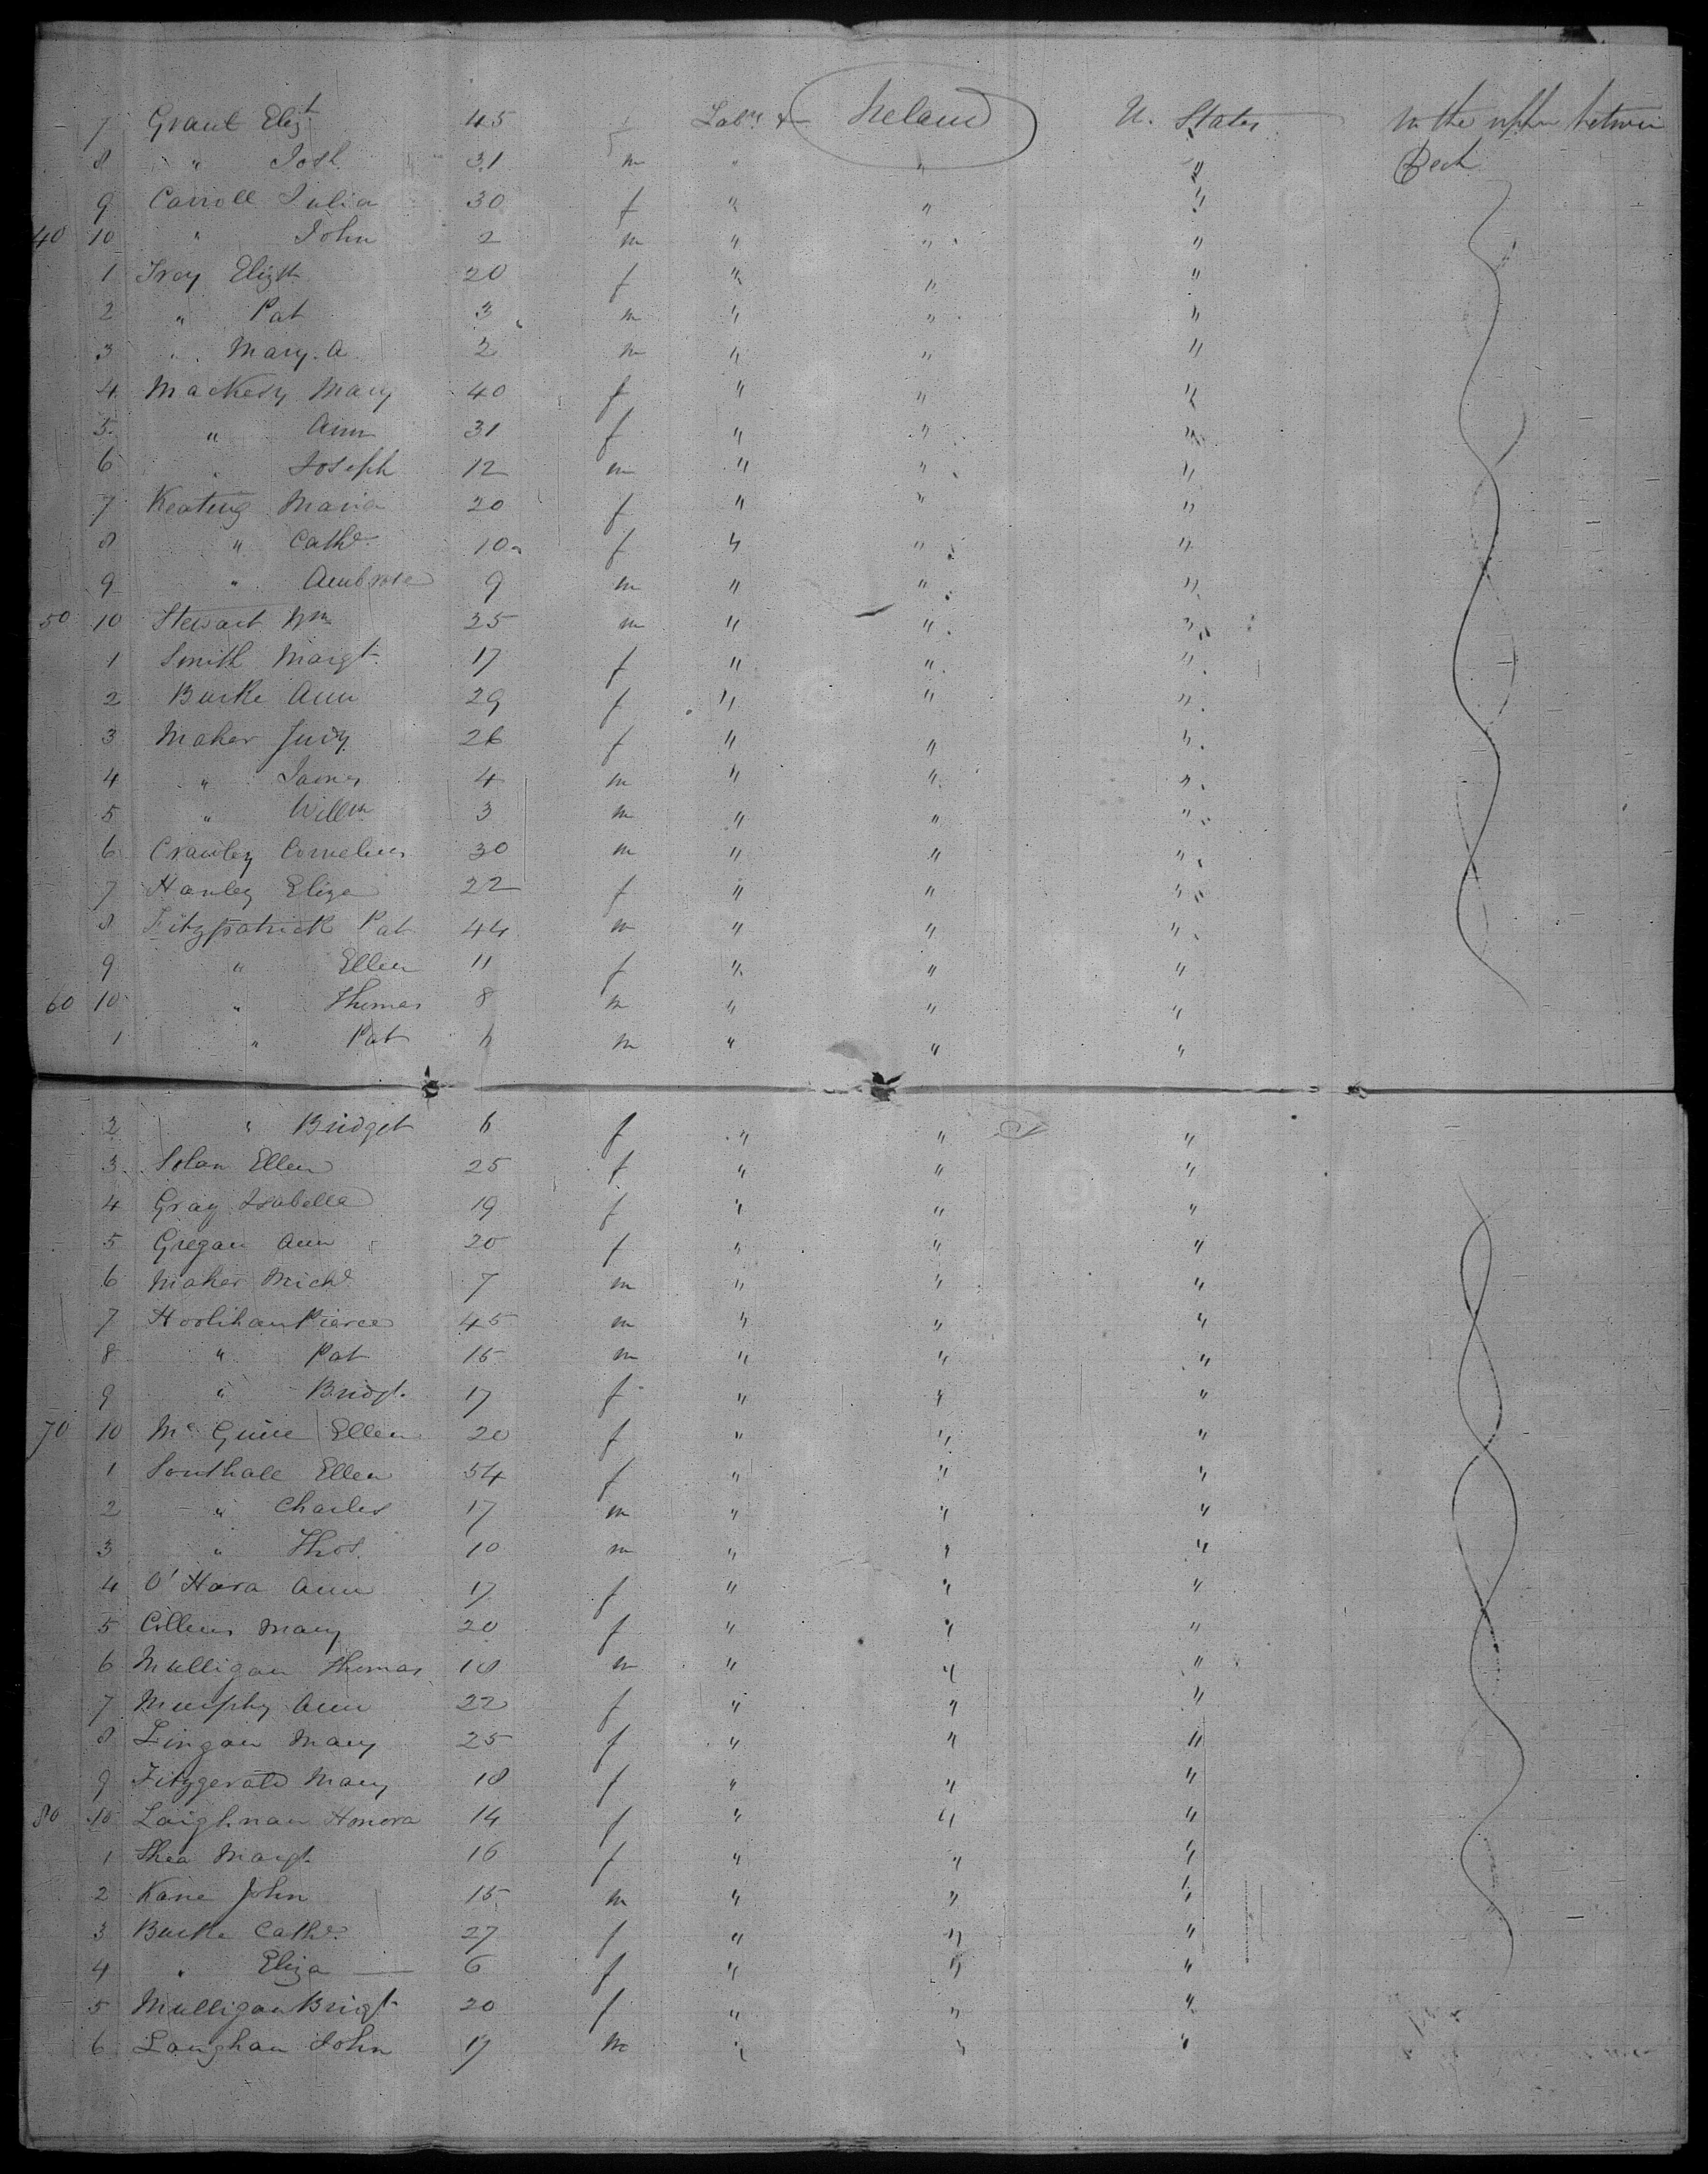 7 Grant Elizt 45 f Labrs &c Ireland U. States In the upper between
8 " Josh 31 m " " " Deck
9 Carroll Julia 30 f " " "
40 10 " John 2 m " " "
1 Troy Elizth 20 f " " "
2 " Pat 3 m " " "
3 " Mary. A 2 m " " "
4 Mackesy Mary 40 f " " "
5 " Ann 31 f " " "
6 " Joseph 12 m " " "
7 Keating Maria 20 f " " "
8 " Cathe 10 f " " "
9 " Ambrose 9 m " " "
50 10 Stewart Wm 25 m " " "
1 Smith Margt 17 f " " "
2 Burke Ann 29 f " " "
3 Maher Judy 26 f " " "
4 " James 4 m " " "
5 " Willm 3 m " " "
6 Crawley Cornelius 30 m " " "
7 Hanley Eliza 22 f " " "
8 Fitzpatrick Pat 44 m " " "
9 " Ellen 11 f " " "
60 10 " Thomas 8 m " " "
1 " Pat m " " "
2 " Bridget f " " "
3 Solan Ellen 25 f " " "
4 Gray Isabella 19 f " " "
5 Gregan Ann 20 f " " "
6 Maher Michl 7 m " " "
7 Hoolihan Pierce 45 m " " "
8 " Pat 15 m " " "
9 " Bridgt. 17 f " " "
70 10 Mc Guire Ellen 20 f " " "
1 Southall Ellen 54 f " " "
2 " Charles 17 m " " "
3 " Thos. 10 m " " "
4 O'Hara Ann 17 f " " "
5 Collins Mary 20 f " " "
6 Mulligan Thomas 18 m " " "
7 Murphy Ann 22 f " " "
8 Lingan Mary 25 f " " "
9 Fitzgerald Mary 18 f " " "
80 10 Laighnan Honora 14 f " " "
1 Shea Margt. 16 f " " "
2 Kane John 15 m " " "
3 Burke Cathe 27 f " " "
4 " Eliza 6 f " " "
5 Mulligan Bridgt 20 f " " "
6 Langhan John 17 m " " "